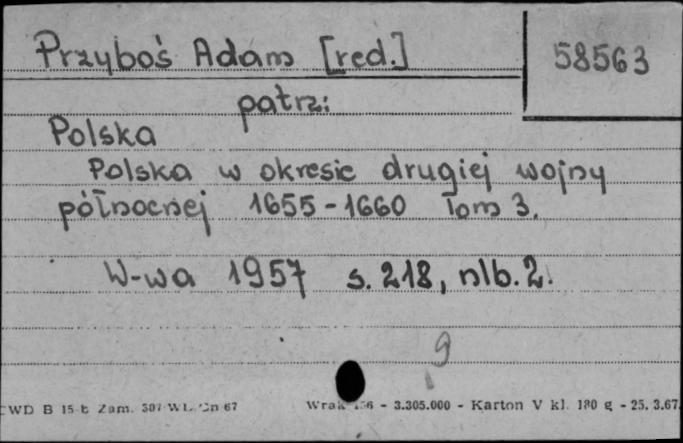 Przyboś Adam [red.]
58563
patrz:
Polska
Polska w okresie drugiej wojny
północnej 1655-1660 Tom 3.
W-wa 1957 s. 218, nlb. 2.
9
CWD B 15 t Zam. 307 WL. Cn 67
- 3.305.000 - Karton V kl. 180 g - 25. 3.67.